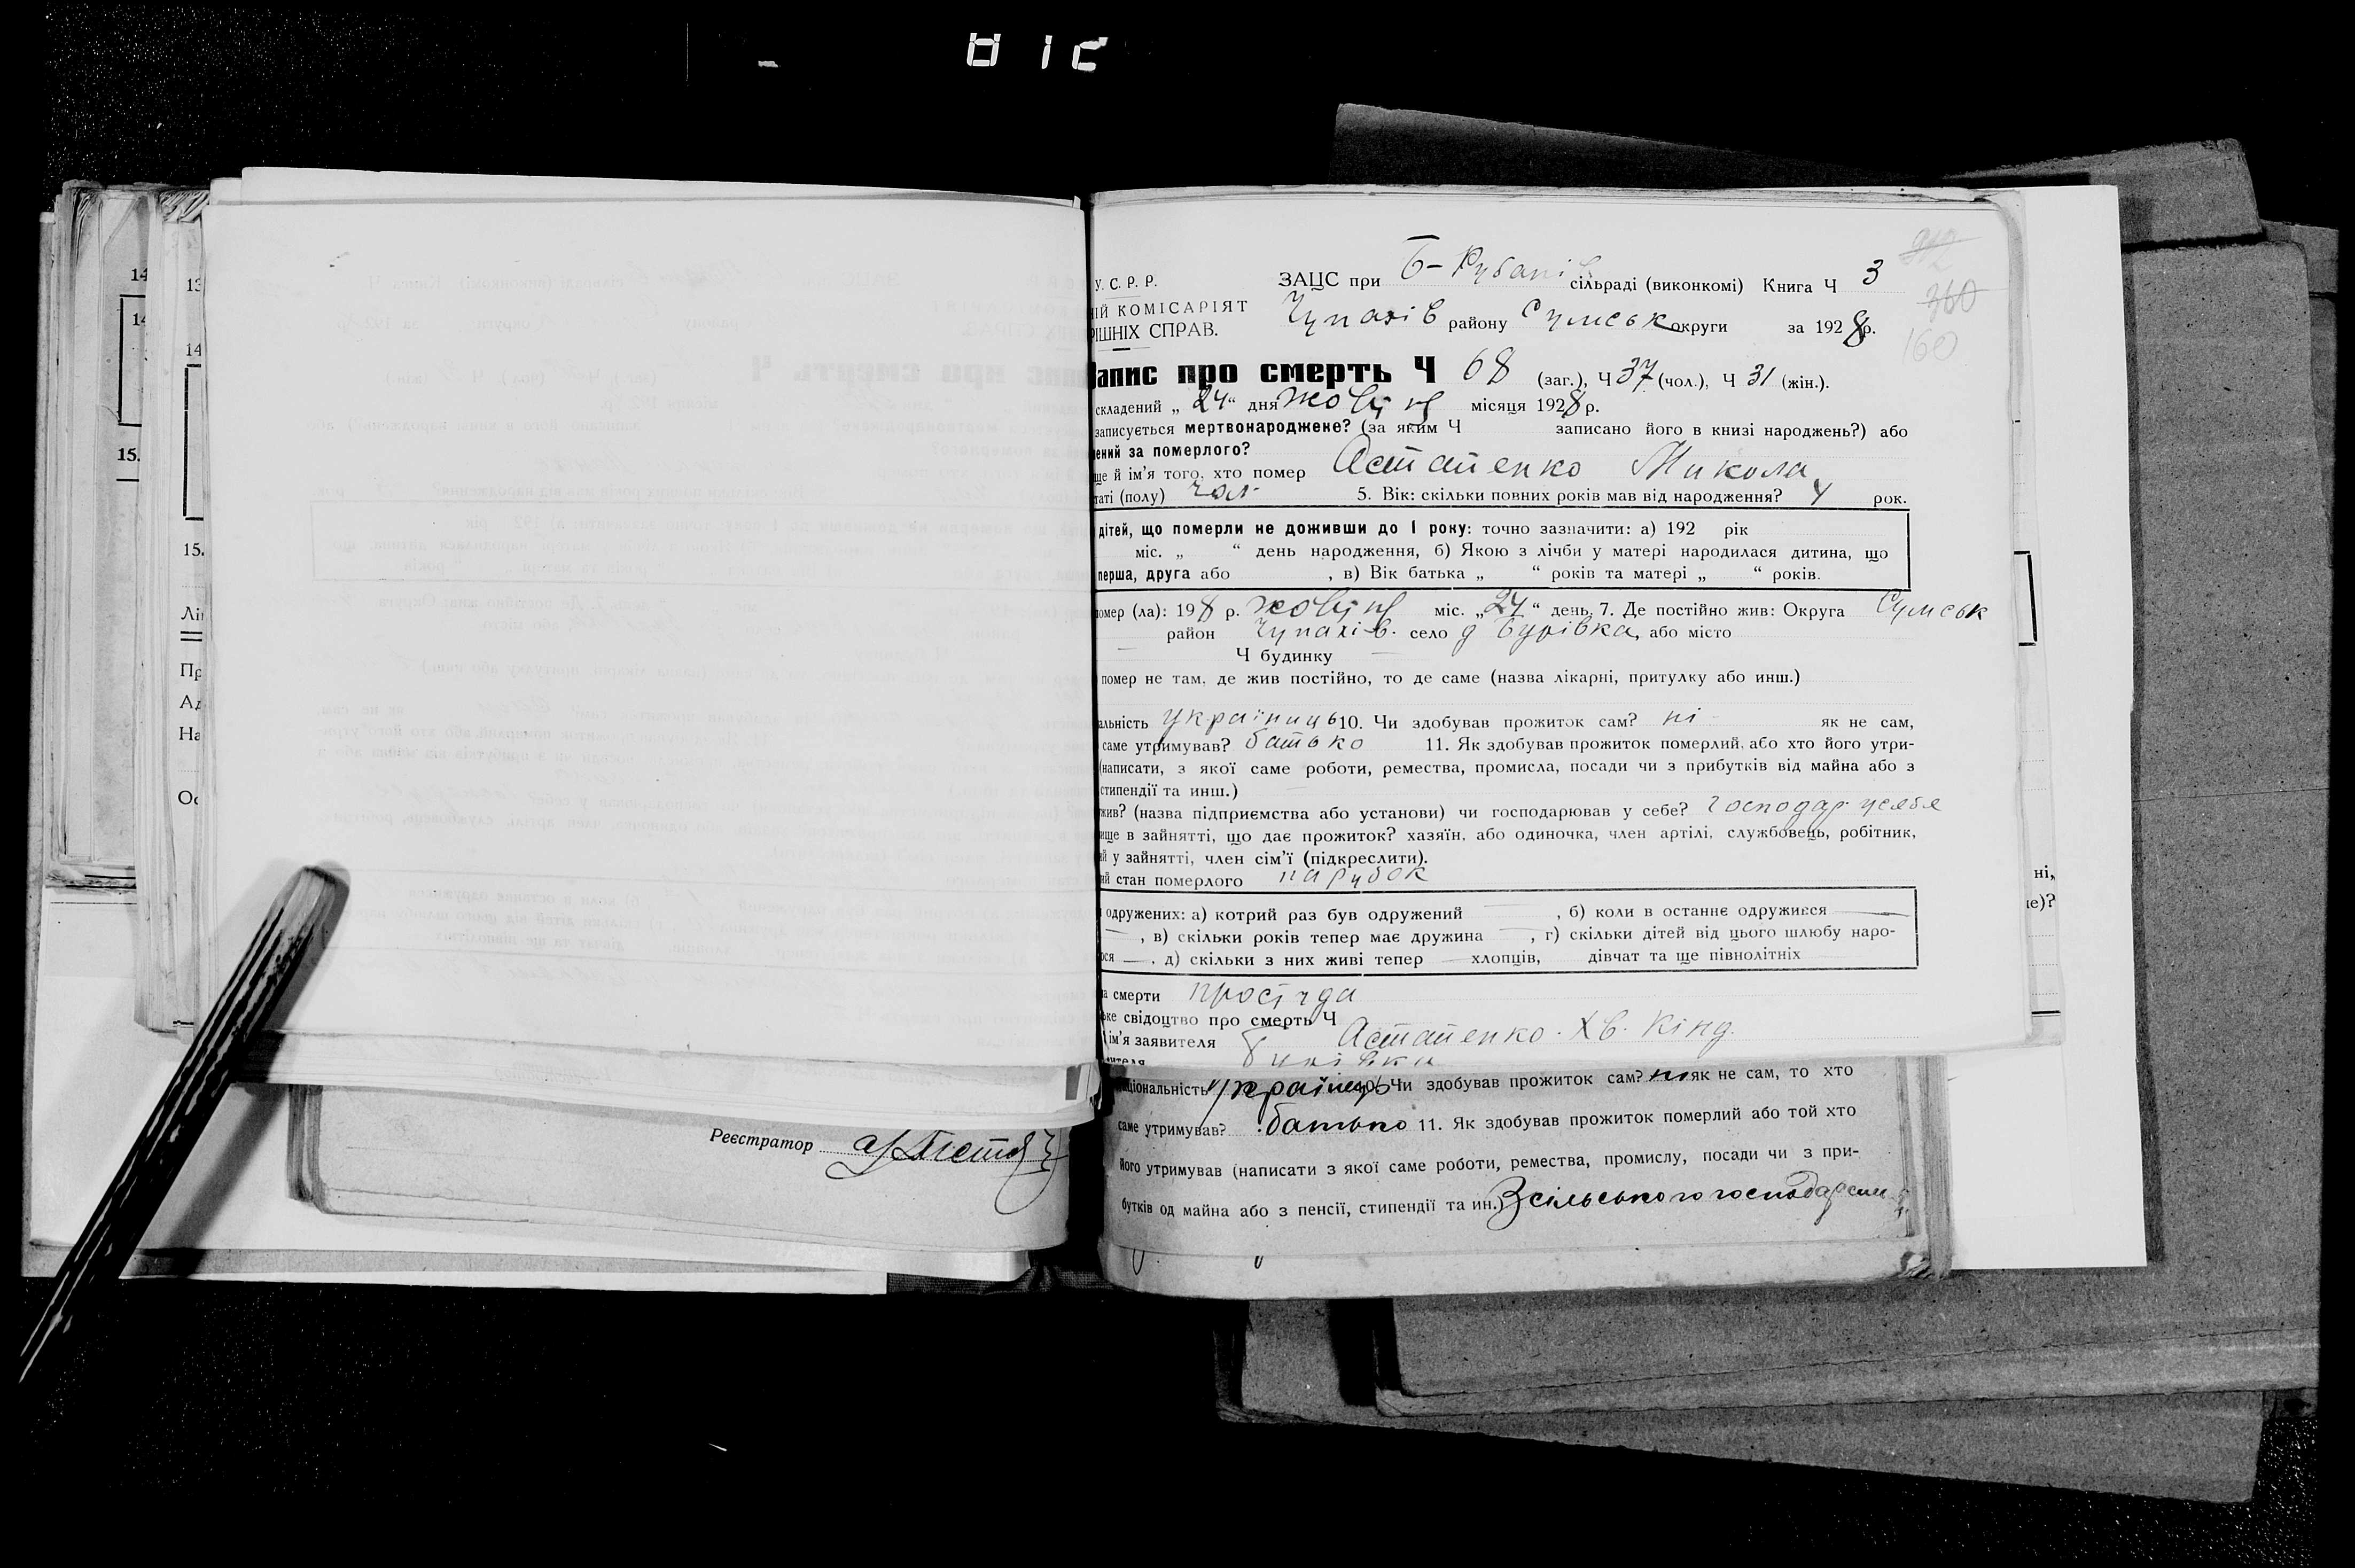 У. С. Р. Р.
ІЙ КОМІСАРІЯТ
ІШНІХ СПРАВ.
ЗАЦС при Б-Рубанів сільраді (виконкомі) Книга Ч 3
Чупахів району Сумськ округи за 1928 р.
360
160
Запис про смерть Ч 68 (заг.), Ч 37 (чол.), Ч 31 (жін.).
складений „ 24 “ дня жовтня місяця 1928 р.
записується мертвонароджене? (за яким Ч записано його в книзі народжень?) або
ений за померлого?
ще й ім’я того, хто помер Астапенко Микола
таті (полу) чол 5. Вік: скільки повних років мав від народження? 4 рок.
дітей, що померли не доживши до 1 року: точно зазначити: а) 192 рік
міс. „ “ день народження, б) Якою з лічби у матері народилася дитина, що
перша, друга або , в) Вік батька „ “ років та матері „ “ років.
помер (ла): 198 р. жовтня міс. „24“ день. 7. Де постійно жив: Округа Сумськ
район Чупахів. село , або місто
Ч будинку
помер не там, де жив постійно, то де саме (назва лікарні, притулку або инш.)
альність українць 10. Чи здобував прожиток сам? ні як не сам,
саме утримував? батько 11. Як здобував прожиток померлий, або хто його утри-
(написати, з якої саме роботи, ремества, промисла, посади чи з прибутків від майна або з
стипендії та инш.)
жив? (назва підприємства або установи) чи господарював у себе? господар у себе
ище в зайнятті, що дає прожиток? хазяїн, або одиночка, член артілі, службовець, робітник,
ий у зайнятті, член сім’ї (підкреслити).
ий стан померлого парубок
одружених: а) котрий раз був одружений — , б) коли в останнє одружився —
— , в) скільки років тепер має дружина — , г) скільки дітей від цього шлюбу наро-
ося — , д) скільки з них живі тепер — хлопців, дівчат та ще півнолітніх
а смерти простуда
ке свідоцтво про смерть Ч
ім’я заявителя Астапенко. Хв. Кінд.
ціональність українць Чи здобував прожиток сам? ні як не сам, то хто
саме утримував? батько 11. Як здобував прожиток померлий або той хто
його утримував (написати з якої саме роботи, ремества, промислу, посади чи з при-
бутків од майна або з пенсії, стипендії та ин.) З сільського господарства
Реєстратор
14
14
15.
13
14
15.
Лі
Пр
Ад
На
Ос
ні,
не)?